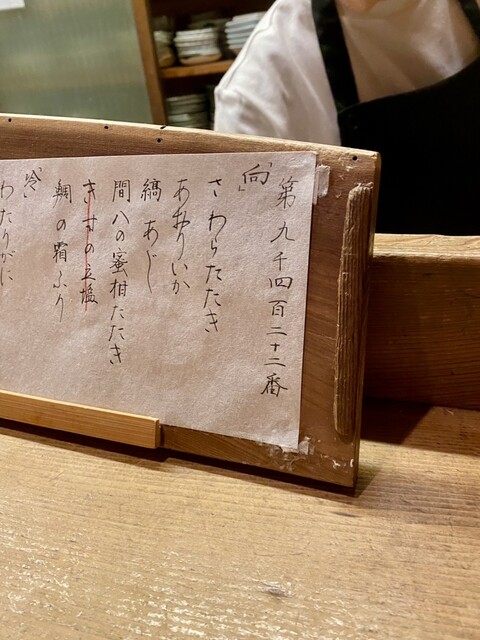 第九千四百二十二番
「向」
さわらたたき
あおりいか
縞あじ
間八の蜜柑たたき
きすの立塩
鯛の霜ふり
「冷」
わたりがに